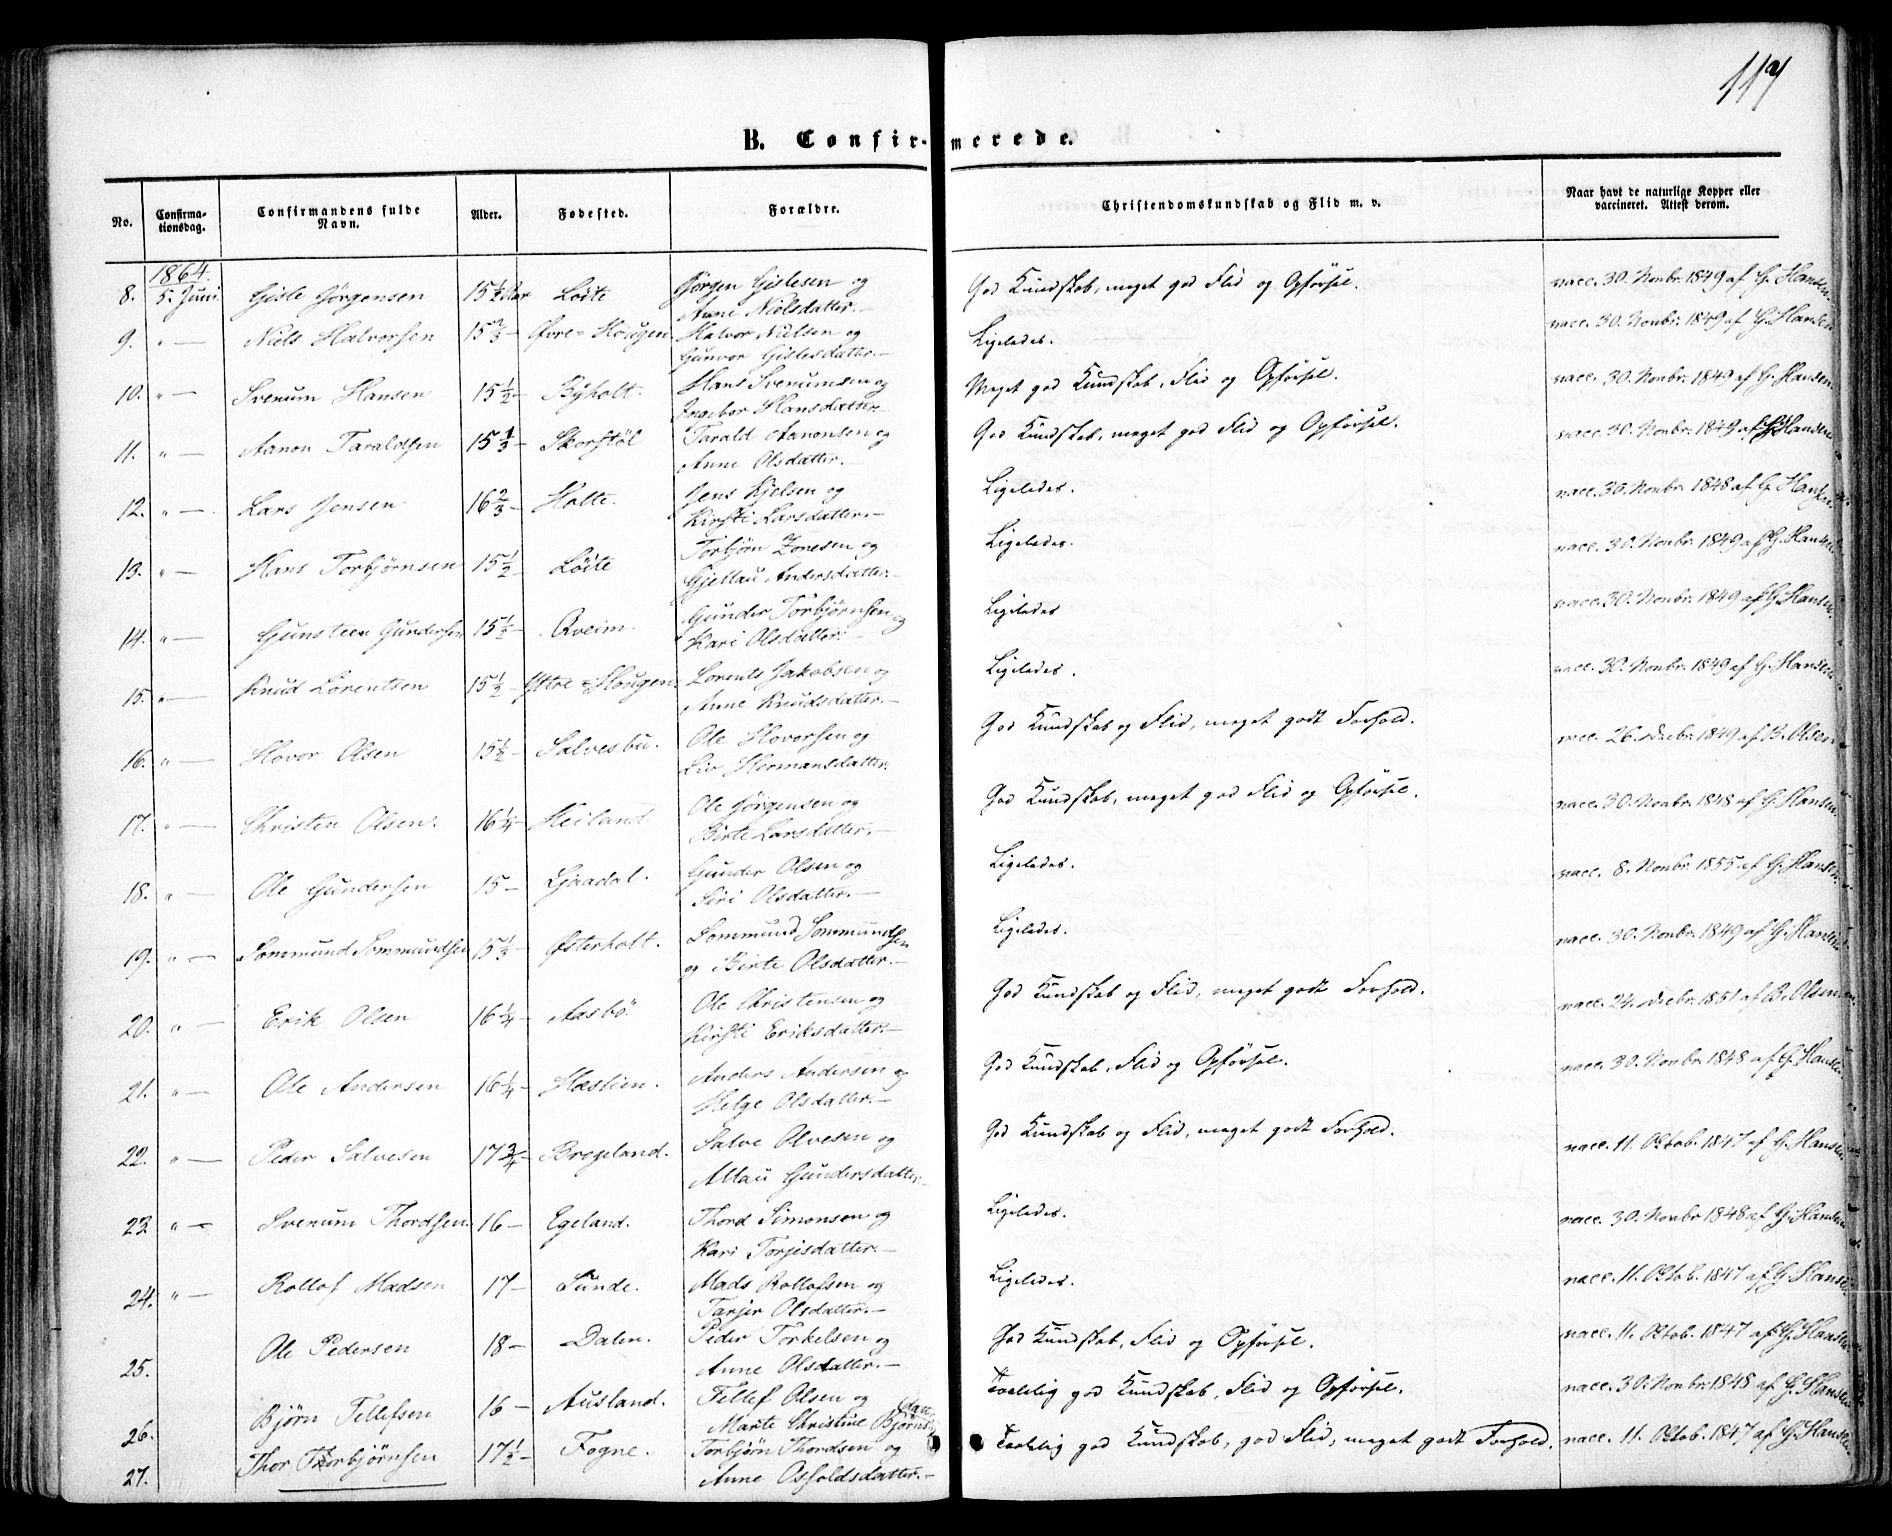 117
B. Confirmerede.
No.
Confirma-
tionsdag.
Confirmandens fulde
Navn.
Alder.
Fødested.
Forældre.
Christendomskundskab og Flid m. v.
Naar havt de naturlige Kopper eller
vaccineret. Attest derom.
1864.
8. 5. Juni Gisle Jørgensen 15½ Aar Løite Jørgen Gislesen og God Kundskab, meget god Flid og Opførsel. vacc. 30. Novbr. 1849 af G. Hansen.
Anne Nielsdatter.—
9. " — Niels Halvorsen 15⅔ — Øvre-Hougen Halvor Nielsen og Ligeledes. vacc. 30. Novbr. 1849 af G. Hansen
Gunvor Gislesdatter.—
10. " — Svenum Hansen 15½ — Byholt. Hans Svenumsen og Meget god Kundskab, Flid og Opførsel. vacc. 30. Novbr. 1849 af G. Hansen.
Ingebor Hansdatter.—
11. " — Aanon Taraldsen 15⅓ — Skorstøl Tarald Aanonsen og God Kundskab, meget god Flid og Opførsel. vacc. 30. Novbr. 1849 af G. Hansen
Anne Olsdatter.—
12. " — Lars Jensen 16⅔ — Holte. Jens Kjelsen og Ligeledes. vacc. 30. Novbr. 1848 af G. Hansen.
Kirsti Larsdatter.—
13. " — Hans Torbjørnsen 15½ — Løite Torbjørn Zonesen og Ligeledes. vacc. 30. Novbr. 1849 af G. Hansen
Gjellau Andersdatter.—
14. " — Gunsteen Gundersen 15½ — Qveim. Gunder Torbjørnsen og Ligeledes vacc. 30. Novbr. 1849 af G. Hansen.
Kari Olsdatter.—
15. " — Knud Lorentsen 15½ — Yttre-Hougen. Lorents Jakobsen og Ligeledes. vacc. 30. Novbr. 1849 af G. Hansen
Anne Knudsdatter.—
16. " — Hovor Olsen 15½ — Salvesbu. Ole Hovorsen og God Kundskab og Flid, meget godt Forhold. vacc. 26. Decbr. 1849 af B. Olsen
Liv Hermansdatter.
17. " — Christen Olsen. 16¼ — Heiland Ole Jørgensen og God Kundskab, meget god Flid og Opførsel. vacc. 30. Novbr. 1848 af G. Hansen.
Birte Larsdatter.—
18. " — Ole Gundersen 15 — Ljaadal. Gunder Olsen og Ligeledes. vacc. 8. Novbr. 1855 af G. Hansen.
Siri Olsdatter.—
19. " — Sommund Sommundsen 15⅓ — Østerholt. Sommund Sommundsen Ligeledes. vacc. 30. Novbr. 1849 af G. Hansen
og Birte Olsdatter.—
20. " — Erik Olsen 16¼ — Aasbø Ole Christensen og God Kundskab og Flid, meget godt Forhold. vacc. 24. Decbr. 1851 af B. Olsen
Kirsti Eriksdatter.—
21. " — Ole Andersen 16¼ — Hastien. Anders Andersen og God Kundskab, Flid og Opførsel. vacc. 30. Novbr. 1848 af G. Hansen.
Helge Olsdatter.—
22. " — Peder Salvesen 17¾ — Brogeland. Salve Olvesen og God Kundskab og Flid, meget godt Forhold. vacc. 11. Oktob. 1847 af G. Hansen
Allau Gundersdatter.
23. " — Svenum Thordsen. 16 — Egeland. Thord Simonsen og Ligeledes. vacc. 30. Novbr. 1848 af G. Hansen
Kari Torjisdatter.—
24. " — Rollof Madsen 17 — Sunde. Mads Rollofsen og Ligeledes. vacc. 11. Oktob. 1847 af G. Hansen.
Tarjer Olsdatter.—
25. Ole Pedersen 18 — Dalen. Peder Torkelsen og God Kundskab, Flid og Opførsel. vacc. 11. Oktob. 1847 af G. Hansen
Anne Olsdatter.—
26. Bjørn Tellefsen 16 — Ausland. Tellef Olsen og Temmelig god Kundskab, Flid og Opførsel. vacc. 30. Novbr. 1848 af G. Hansen
Marte Christine Bjørnsdatter
27. Thor Thorbjørnsen 17½ — Fogne. Torbjørn Thordsen og god Kundskab, god Flid, meget godt Forhold. vacc. 11. Oktob. 1847 af G. Hansen
Anne Osfoldsdatter.—